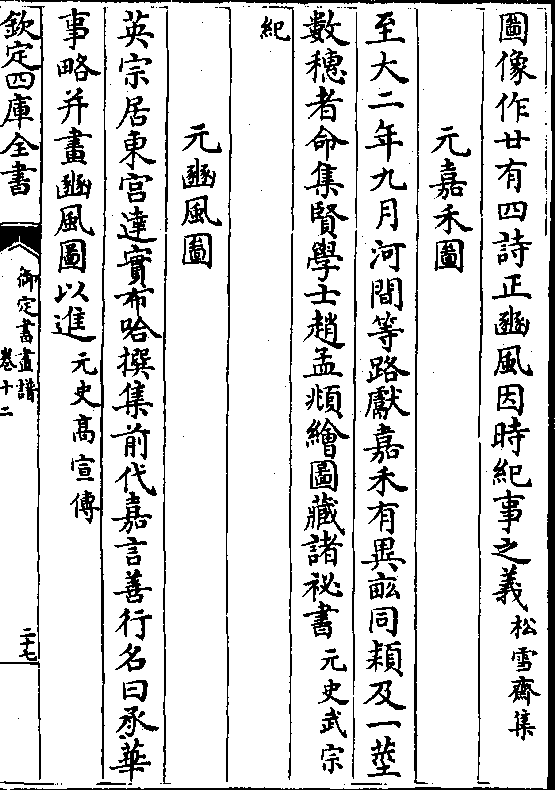 圖像作廿有四詩正豳風因時紀事之義松雪齋集
元嘉禾圖
至大二年九月河間等路獻嘉禾有異畝同穎及一莖
數穗者命集賢學士趙孟頫繪圖藏諸祕書元史武宗
紀
元豳風圖
英宗居東宫達實布哈撰集前代嘉言善行名曰承華
事略并畫豳風圖以進元史髙宣傳
欽定四庫全書
御定書畫譜
卷十二
二十七